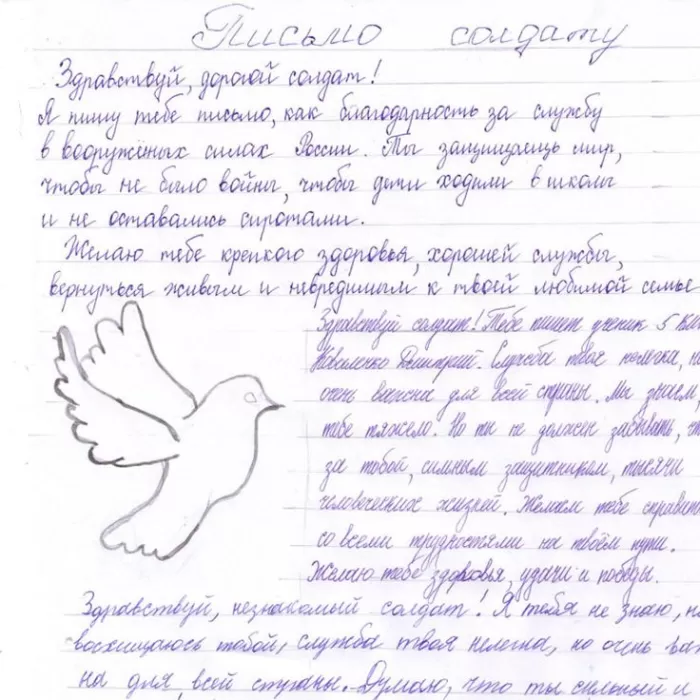 Письмо солдату
Здравствуй, дорогой солдат!
Я пишу тебе письмо, как благодарность за службу
в вооружёных силах России. Ты защищаешь мир,
чтобы не было войны, чтобы дети ходили в школы
и не оставались сиротами.
Желаю тебе крепкого здоровья, хорошей службы,
вернуться живым и невредимым к твоей любимой семье
Здравствуй солдат! Тебе пишет ученик 5 кла
Коваленко Дмитрий. Служба твоя нелегка, но
очень важна для всей страны. Мы знаем,
тебе тяжело. Но ты не должен забывать, ч
за тобой, сильным защитником, тысячи
человеческих жизней. Желаем тебе справить
со всеми трудностями на твоём пути.
Желаю тебе здоровья, удачи и победы.
Здравствуй, незнакомый солдат! Я тебя не знаю, н
восхищаюсь тобой, служба твоя нелегка, но очень важ
на для всей страны. Думаю, что ты сильный и